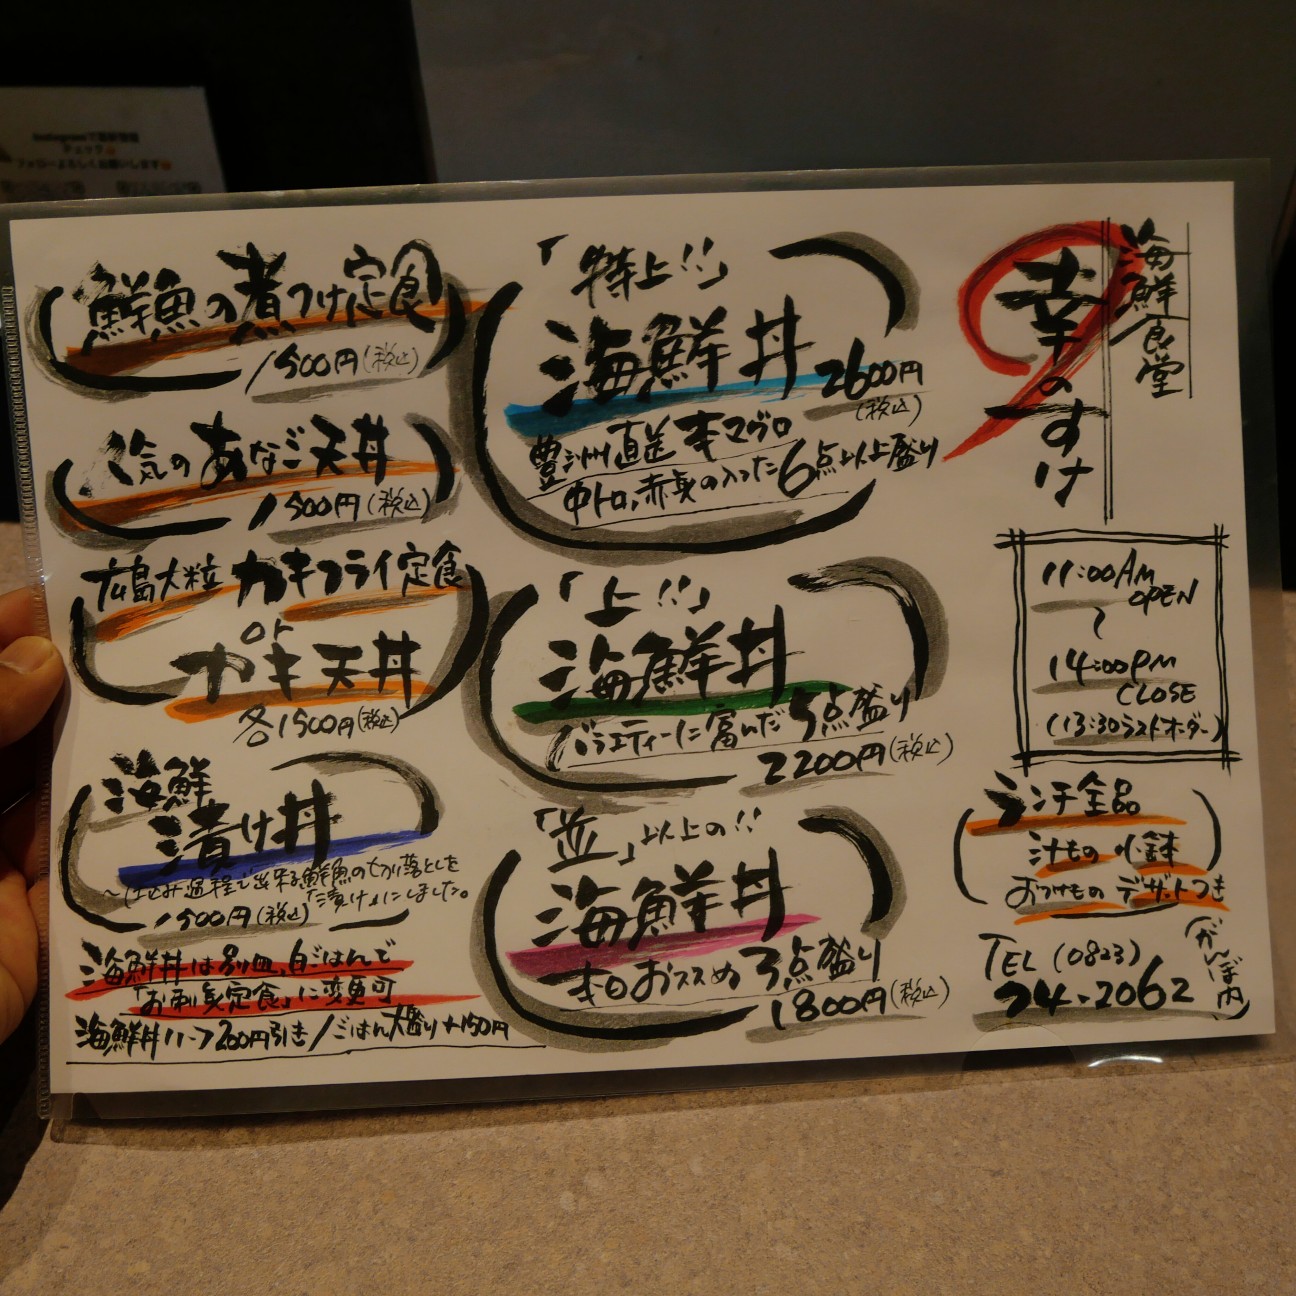 海鮮食堂
幸のすけ
11:00AM
OPEN
〜
14:00PM
CLOSE
(13:30ラストオーダー)
ランチ全品
汁もの 小鉢
おつけもの デザートつき
TEL (0823)
24-2062
(がんぼ内)
「特上!!」
海鮮丼
2600円
(税込)
豊洲直送 本マグロ
中トロ、赤身の入った6点以上盛り
「上!!」
海鮮丼
バラエティーに富んだ 5点盛り
2200円(税込)
「並」以上の!!
海鮮丼
本日おススメ 3点盛り
1800円(税込)
鮮魚の煮つけ定食
1500円(税込)
人気のあなご天丼
1500円(税込)
広島大粒 カキフライ定食
or
カキ天丼
各1500円(税込)
海鮮
漬け丼
〜仕込み過程で出来る鮮魚の切り落としを
「漬け」にしました。
1500円(税込)
海鮮丼は別皿、白ごはんで
「お刺身定食」に変更可
海鮮丼ハーフ200円引き/ごはん大盛り+150円
チェック
フォローよろしくお願いします